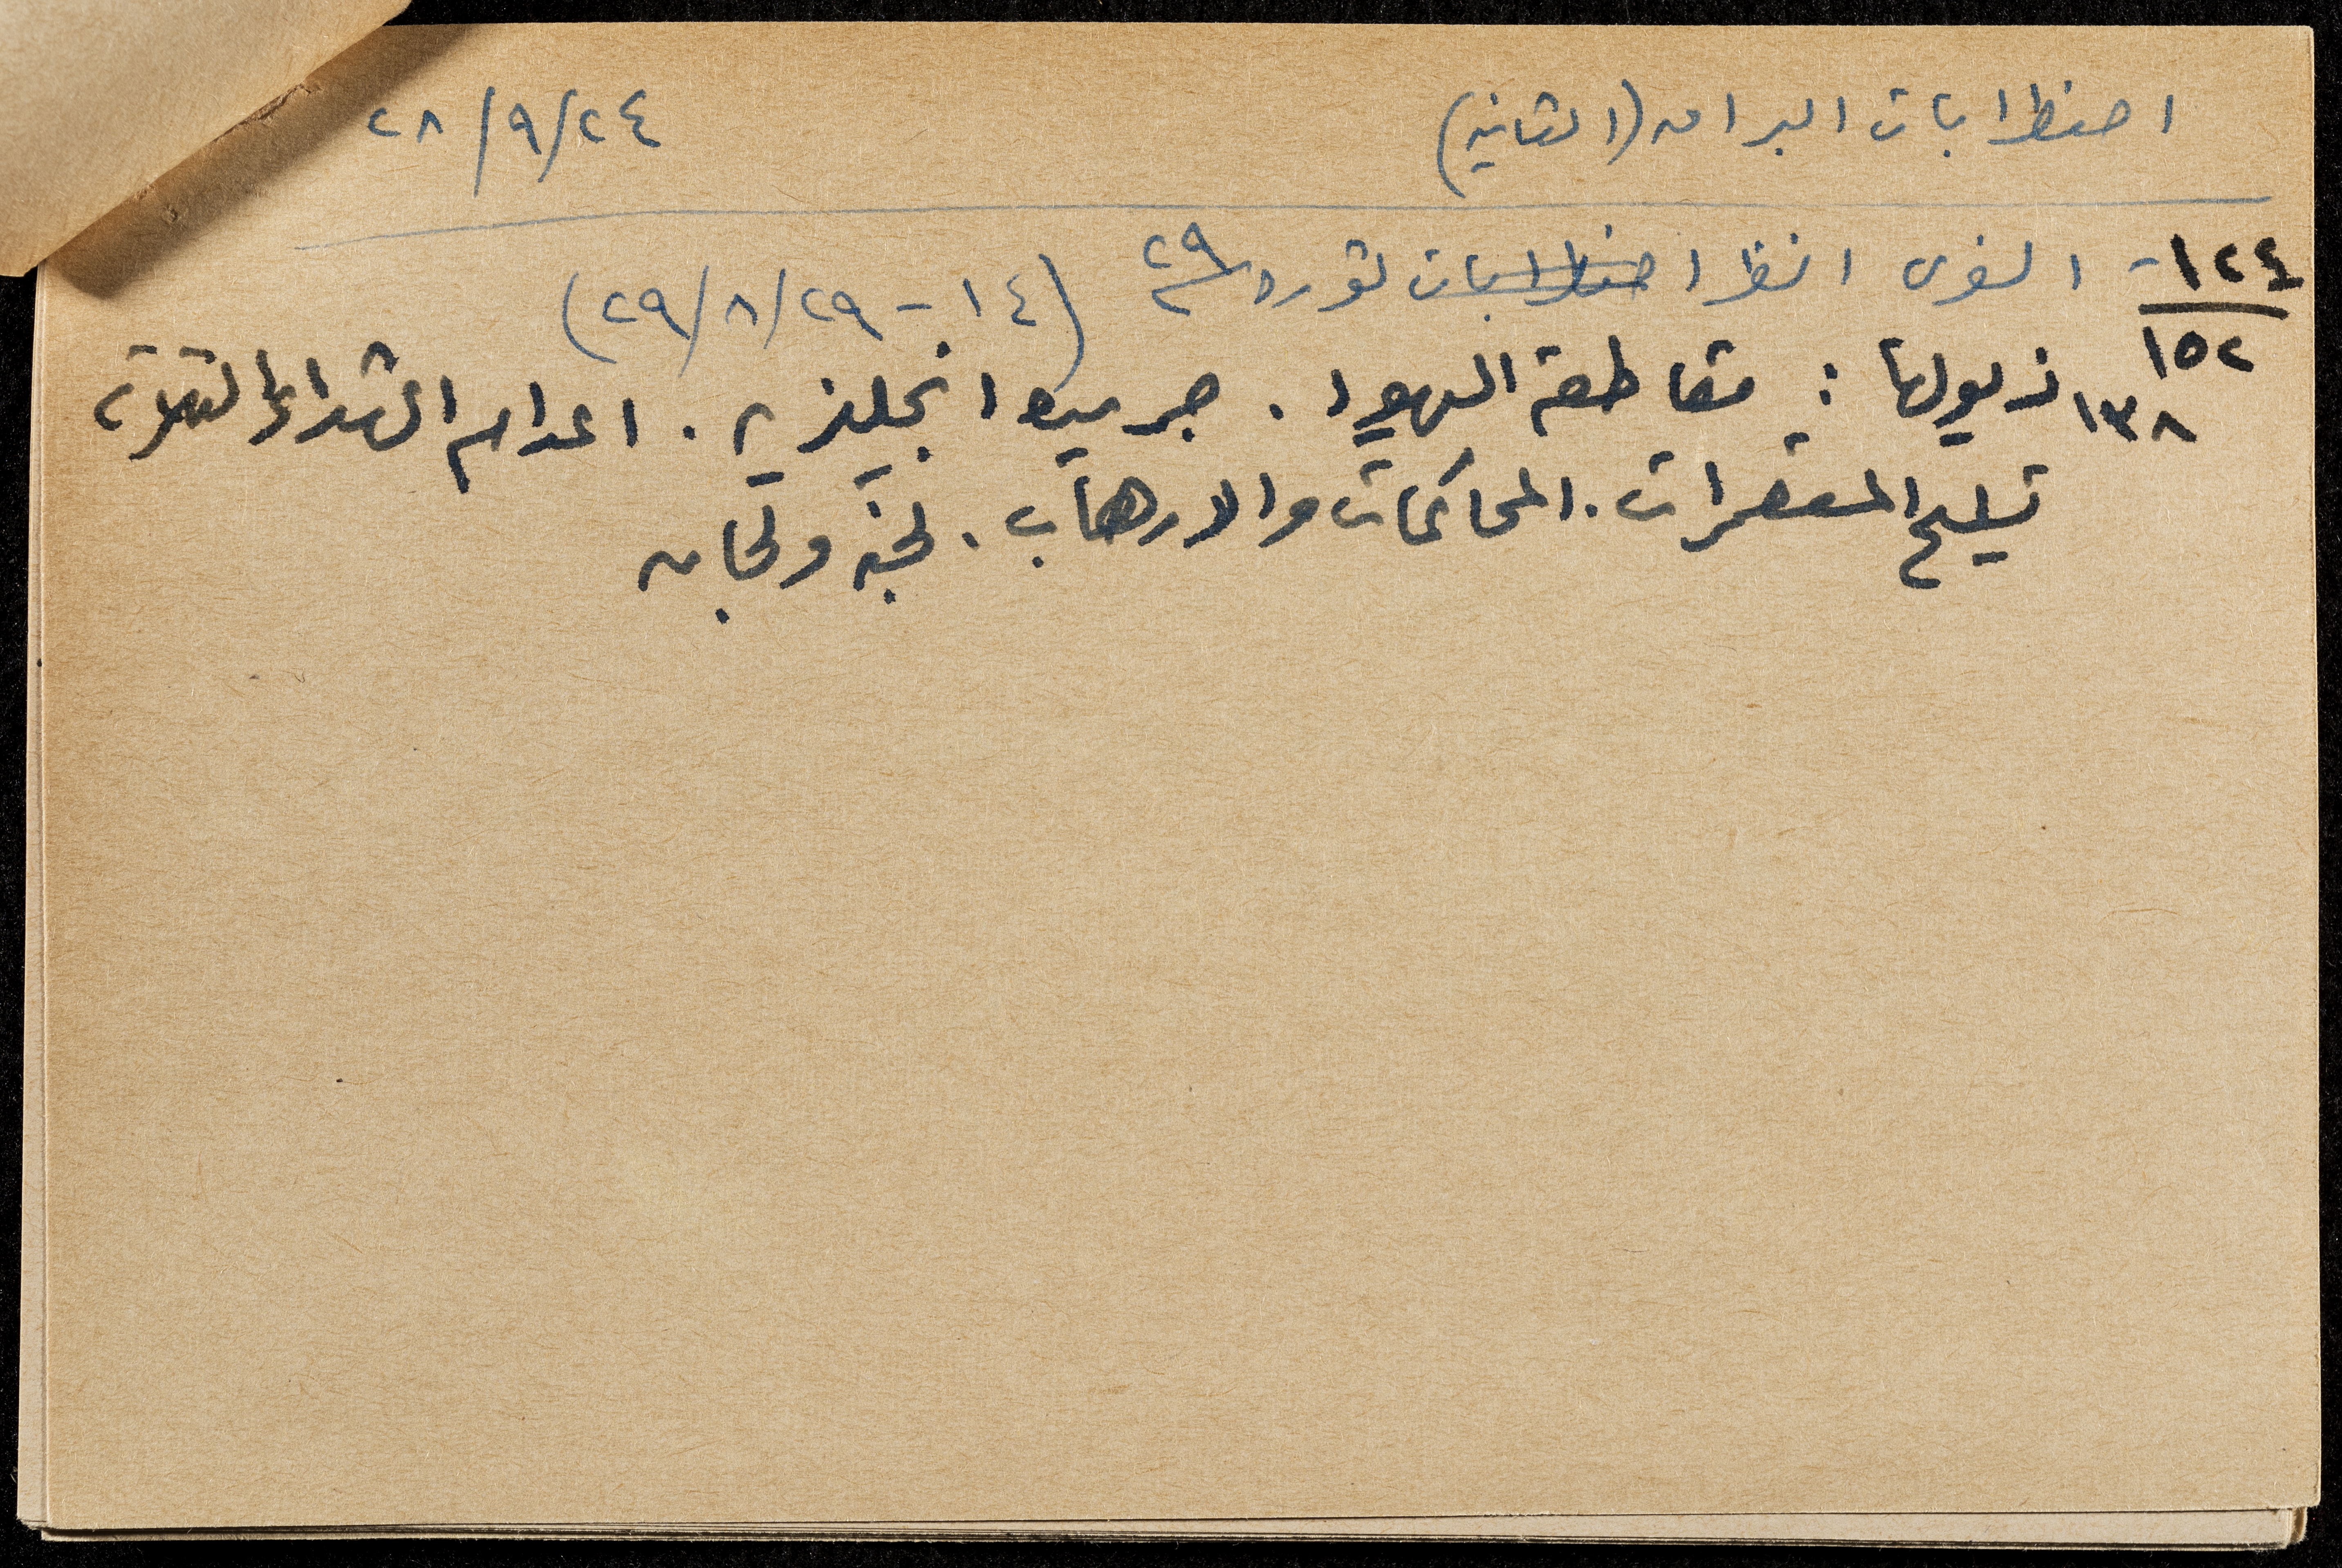 اضطرابات البراق (الثانية) ٢٤/٩/٢٨
١٢٤- انظر اضطرابات ثورة ٢٩ (١٤-٢٩/٨/٢٩)
١٥٢
١٣٨ ذيولها : مقاطعة اليهود . جريمة انجليزية . اعدام الشهداء الثلاثة
تسليح المستعمرات . المحاكمات والارهاب . لجنة ولجان